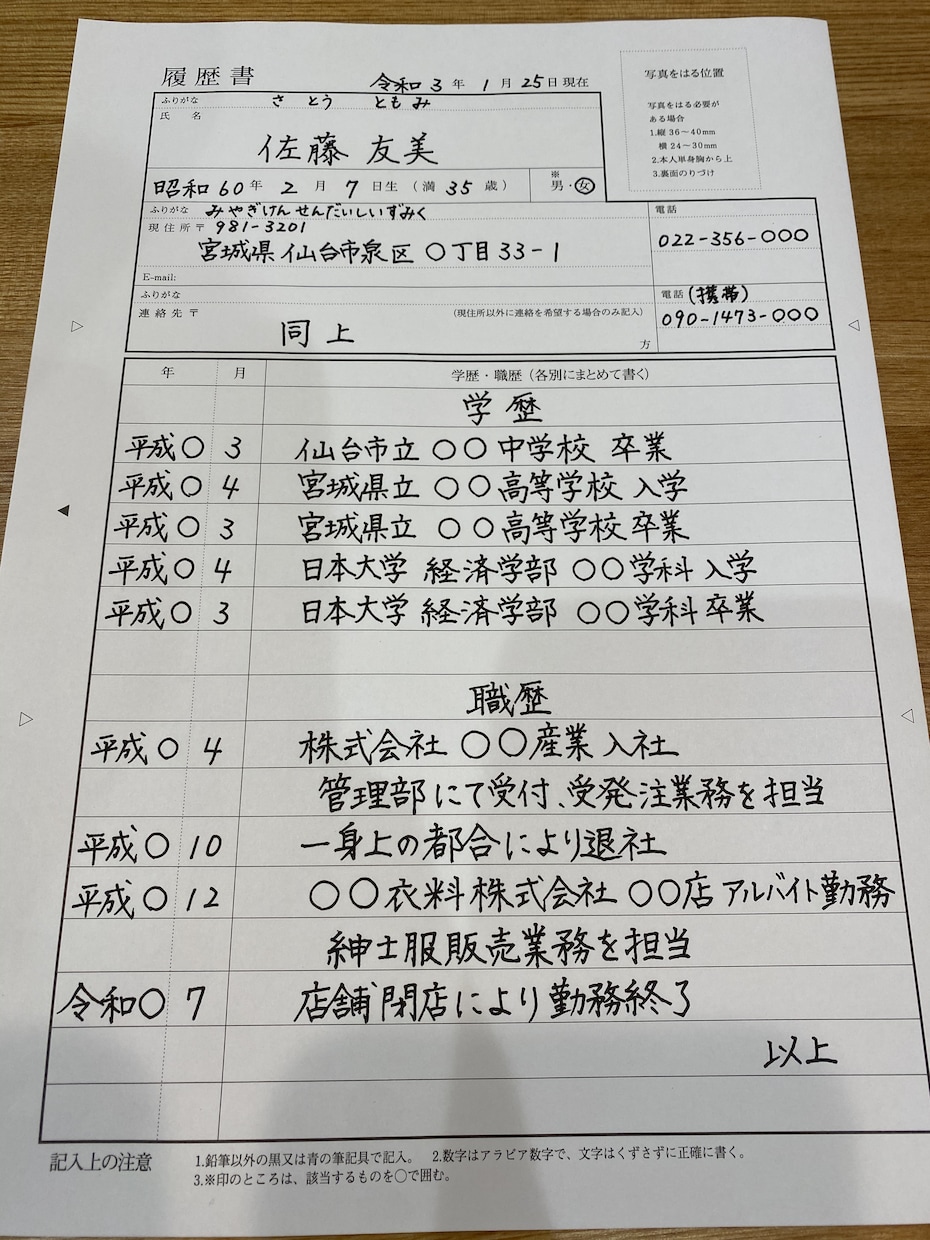 履歴書
令和 3 年 1 月 25 日現在
写真をはる位置
写真をはる必要が
ある場合
1.縦 36～40mm
横 24～30mm
2.本人単身胸から上
3.裏面のりづけ
ふりがな さとう ともみ
氏 名
佐藤 友美
昭和 60 年 2 月 7 日生 (満 35 歳)
※
男・女
ふりがな みやぎけんせんだいしいずみく
現住所 〒 981-3201
宮城県仙台市泉区 〇丁目33-1
E-mail:
電話
022-356-〇〇〇
ふりがな
連絡先 〒
(現住所以外に連絡を希望する場合のみ記入)
同上
方
電話 (携帯)
090-1473-〇〇〇
年 月 学歴・職歴 (各別にまとめて書く)
学歴
平成〇 3 仙台市立 〇〇中学校 卒業
平成〇 4 宮城県立 〇〇高等学校 入学
平成〇 3 宮城県立 〇〇高等学校 卒業
平成〇 4 日本大学 経済学部 〇〇学科 入学
平成〇 3 日本大学 経済学部 〇〇学科 卒業
職歴
平成〇 4 株式会社 〇〇産業 入社
管理部にて受付、受発注業務を担当
平成〇 10 一身上の都合により退社
平成〇 12 〇〇衣料株式会社 〇〇店 アルバイト勤務
紳士服販売業務を担当
令和〇 7 店舗閉店により勤務終了
以上
記入上の注意
1.鉛筆以外の黒又は青の筆記具で記入。 2.数字はアラビア数字で、文字はくずさずに正確に書く。
3.※印のところは、該当するものを〇で囲む。